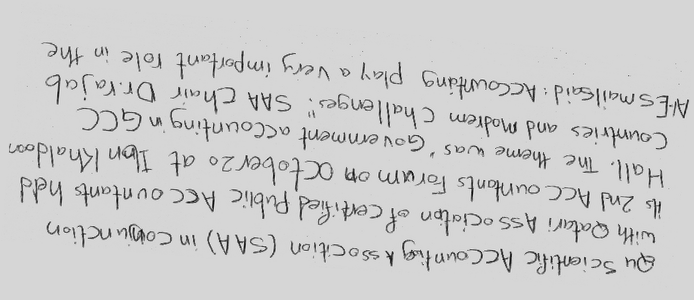 Qu Scientific Accounting Association (SAA) in conjunction
with Qatari Association of certified public Accountants held
its 2nd Accountants Forum on October 20 at Ibn Khaldoon
Hall. The theme was "Government accounting in GCC
Countries and modrem Challenges". SAA Chair Dr. rajab
Al-Esmailsaid: Accounting play a very important role in the